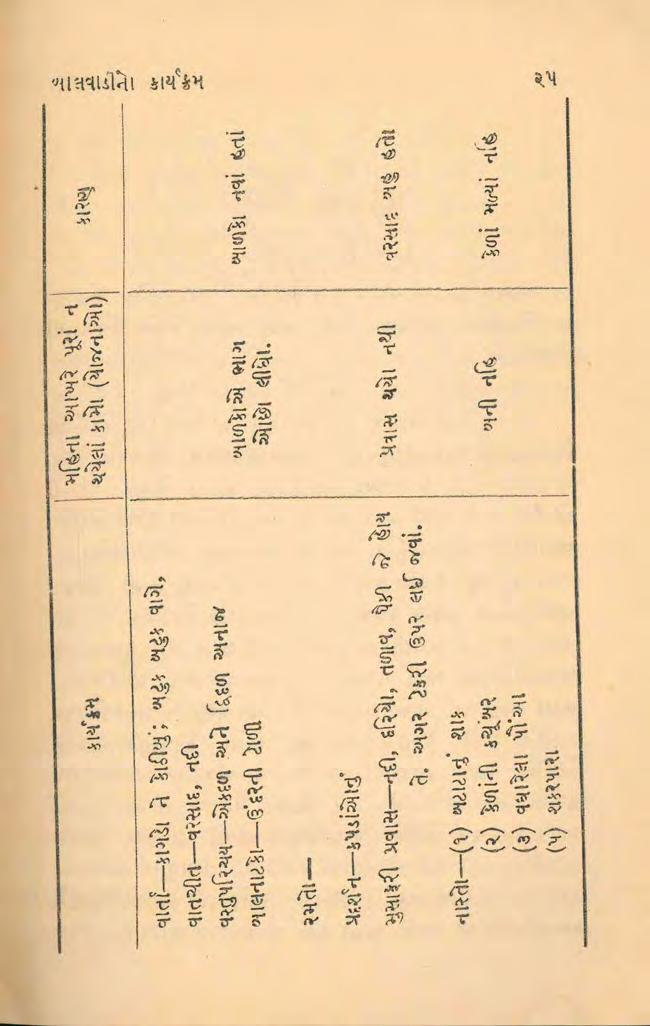 બાલવાડીનો કાર્યક્રમ ૨૫
કાર્યક્રમ
મહિના આખરે પૂરાં ન
થયેલાં કામો (યોજનાઓ)
કારણ
વાર્તા—કાગડો ને કોઠીયું; ખટુક ખટુક વાગે,
વાતચીત—વરસાદ, નદી
વસ્તુપરિચય—એકદળ અને દ્વિદળ અનાજ
બાલનાટકો—ઉંદરની ટોળી
બાળકોએ ભાગ
ઓછો લીધો.
બાળકો નવાં હતાં
રમતો—
પ્રદર્શન—કપડાંઓનું
મુસાફરી પ્રવાસ—નદી, દરિયો, તળાવ, પૈકી જે હોય
તે. અગર ટેકરી ઉપર લઈ જવાં.
પ્રવાસ થયો નથી
વરસાદ બહુ હતો
નાસ્તો—(૧) બટાટાનું શાક
(૨) કેળાંની કચૂંબર
બની નહિ
કેળાં મળ્યાં નહિ
(૩) વઘારેલા પૌંઆ
(૫) શકરપારા